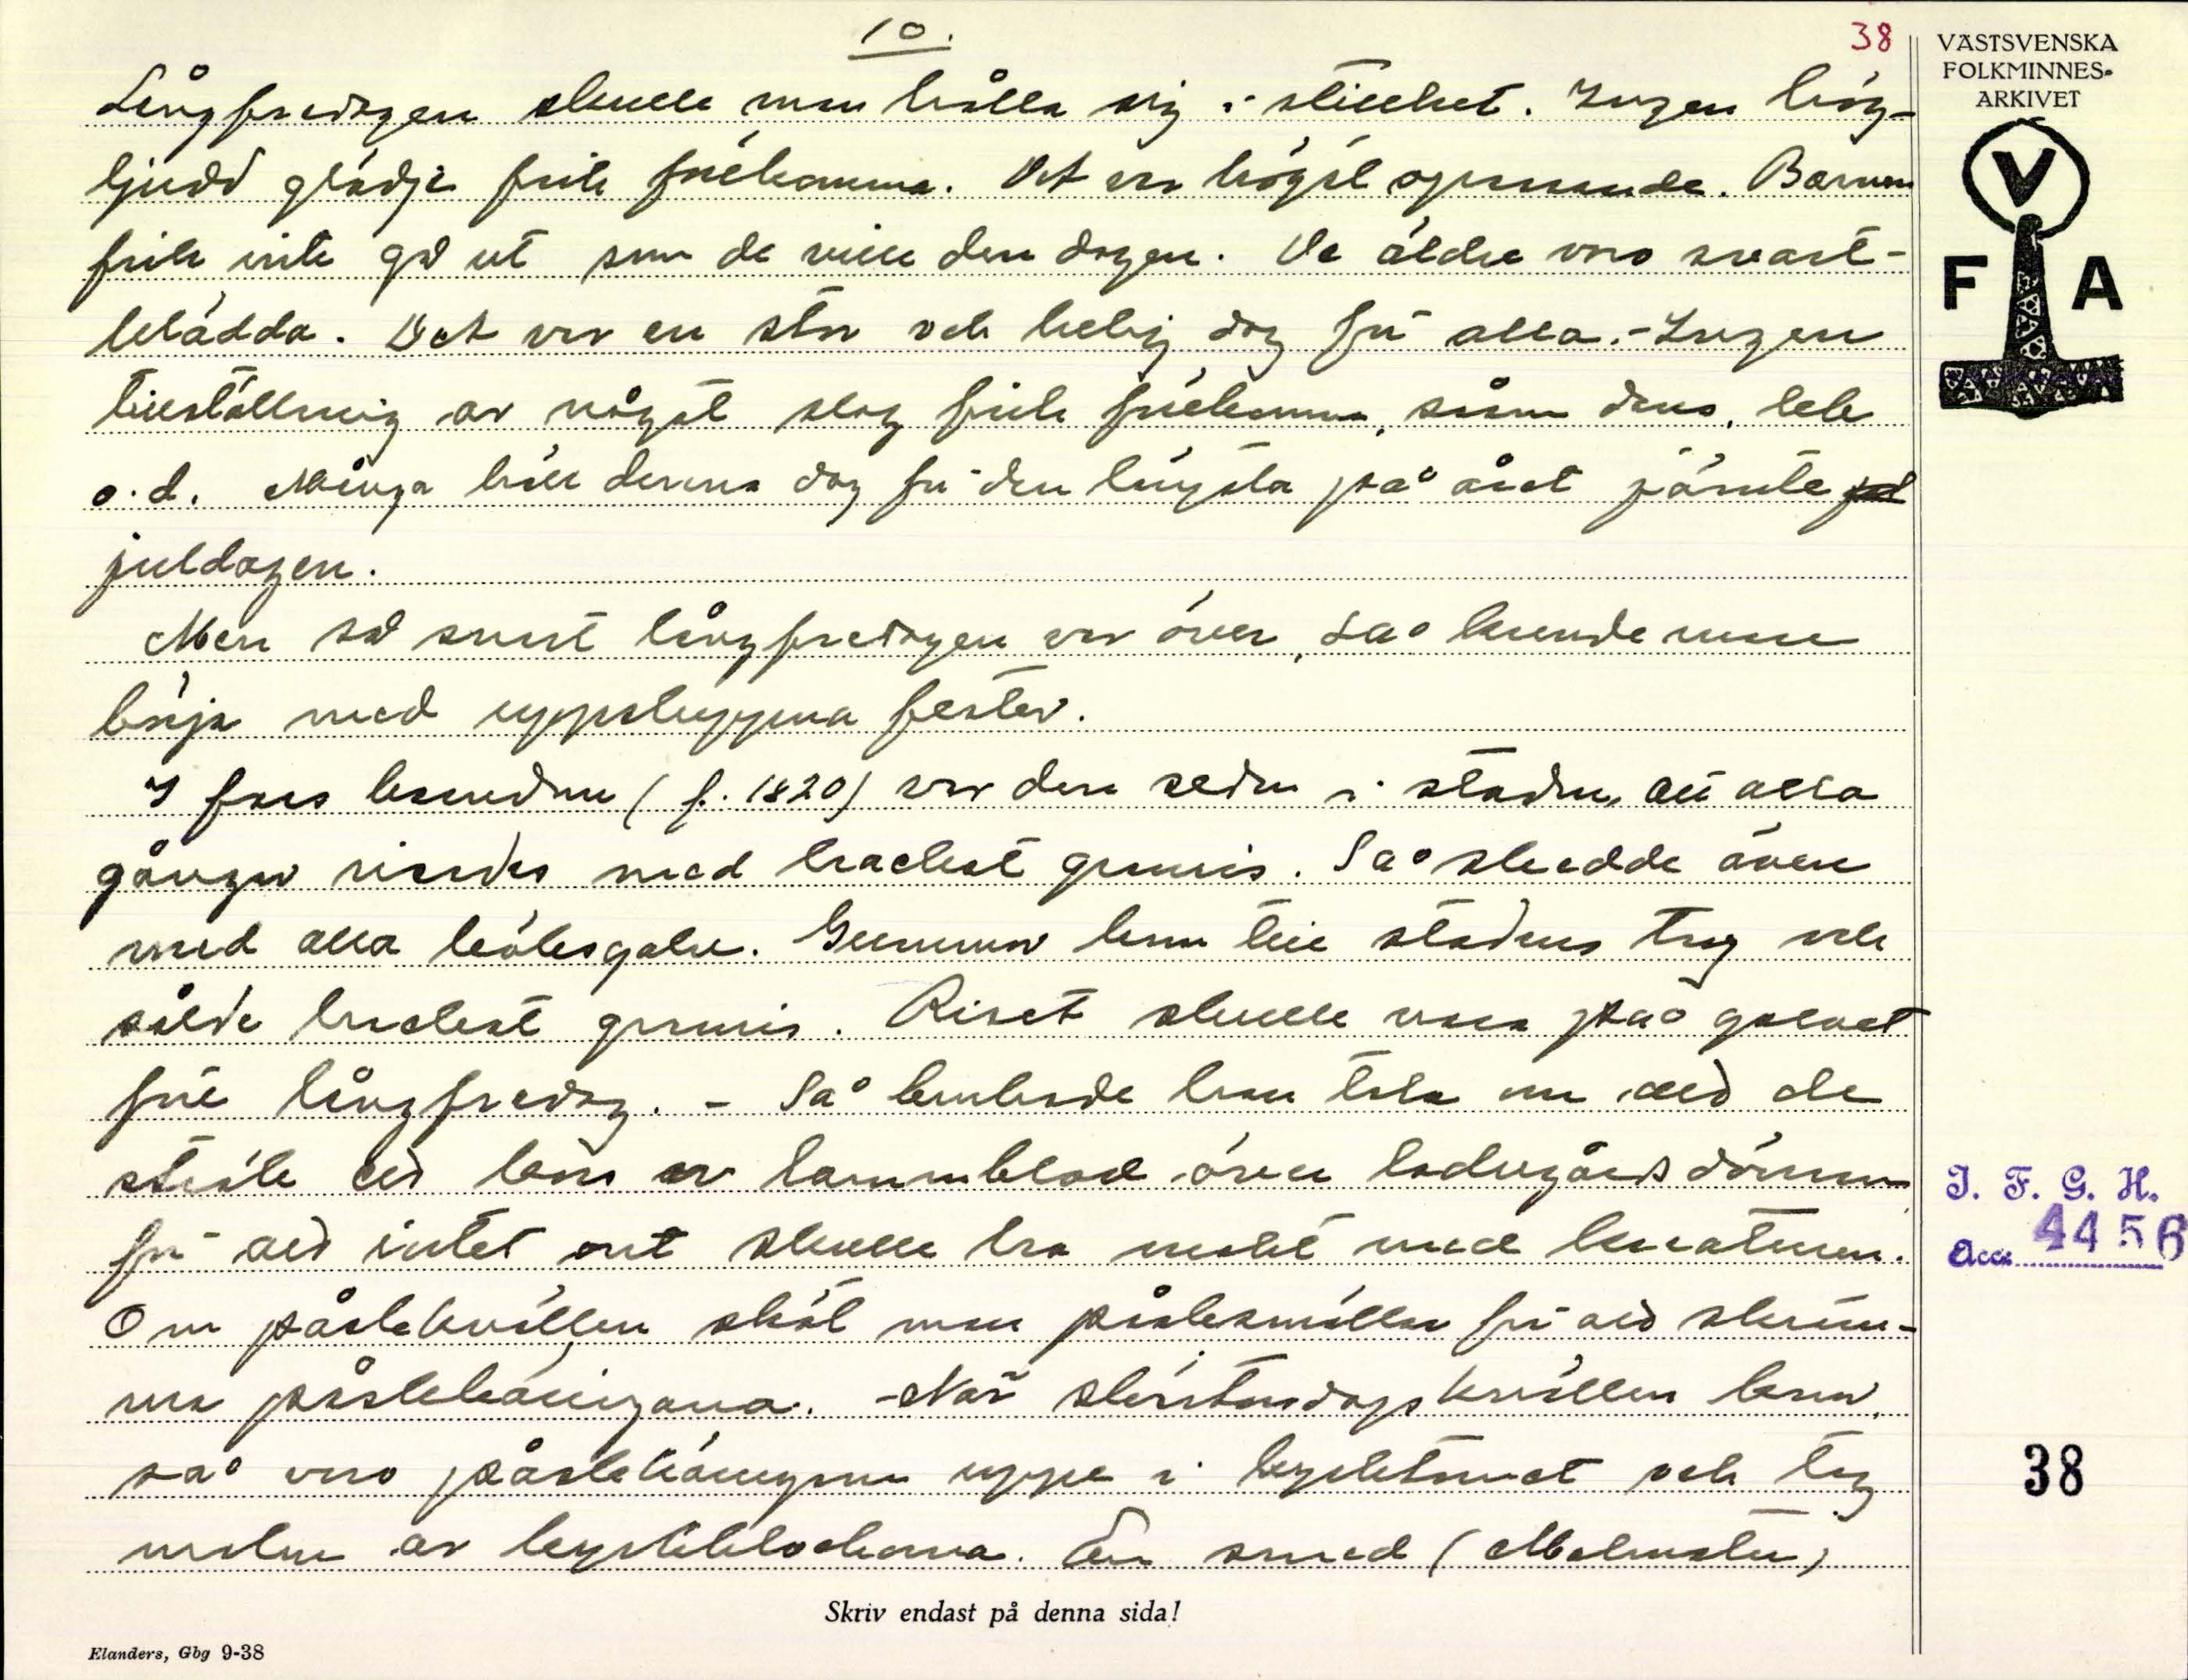 10.
38
VÄSTSVENSKA
FOLKMINNES-
ARKIVET
V
F A
Långfredagen skulle man hålla sig i stillhet. Ingen hög-
ljudd glädje fick förekomma. Det var högst opassande. Barnen
fick inte gå ut som de ville den dagen. De äldre voro svart-
klädda. Det var en stor och helig dag för alla. - Ingen
tillställning av något slag fick förekomma, såsom dans, lek
o.d. Många höll denna dag för den högsta på året jämte jul
juldagen.
Men så snart långfredagen var över, så kunde man
börja med uppsluppna fester.
I fars barndom (f. 1820) var den seden i staden, att alla
gångar risades med hackat granris. Så skedde även
med alla köksgolv. Gummor kom till stadens torg och
sålde hackat granris. Riset skulle vara på golvet
före långfredag. - Så brukade han tala om att de
strök ett kors av lammblod över ladugårdsdörrarna
för att intet ont skulle ha makt med kreaturen.
Om påskkvällen sköt man påsksmällar för att skräm-
ma påskkäringarna. - När skärtorsdagskvällen kom,
så voro påskkäringarna uppe i kyrktornet och tog
malm av kyrkklockorna. En smed (Malmsten)
J. F. G. H.
Acc. 4456
38
Skriv endast på denna sida!
Elanders, Gbg 9-38